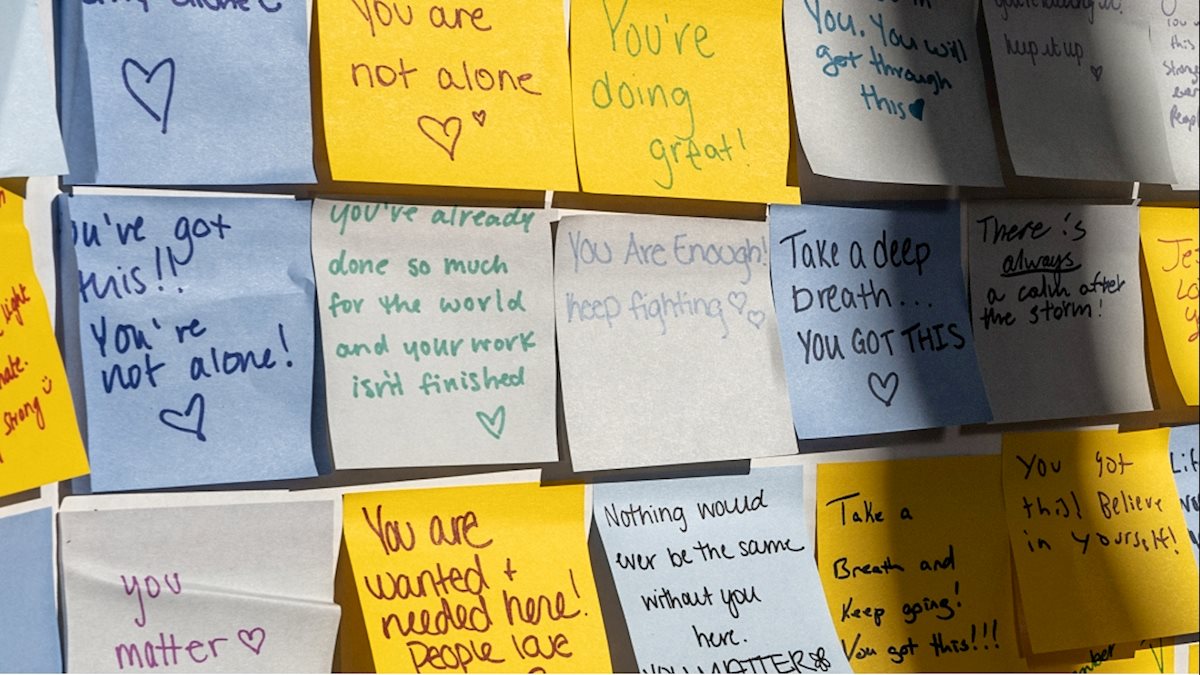 alone
You are
not alone
You're
doing
great!
You. You will
get through
this
keep it up
this
Strong
ever
Peop
ou've got
this!!
You're
not alone!
you've already
done so much
for the world
and your work
isn't finished
You Are Enough!
keep fighting
Take a deep
breath...
YOU GOT THIS
There is
always
a calm after
the storm!
light
hate.
strong
you
matter
You are
wanted +
needed here!
People love
Nothing would
ever be the same
without you
here.
YOU MATTER
Take a
Breath and
Keep going!
You got this!!!
You got
this! Believe
in yourself!